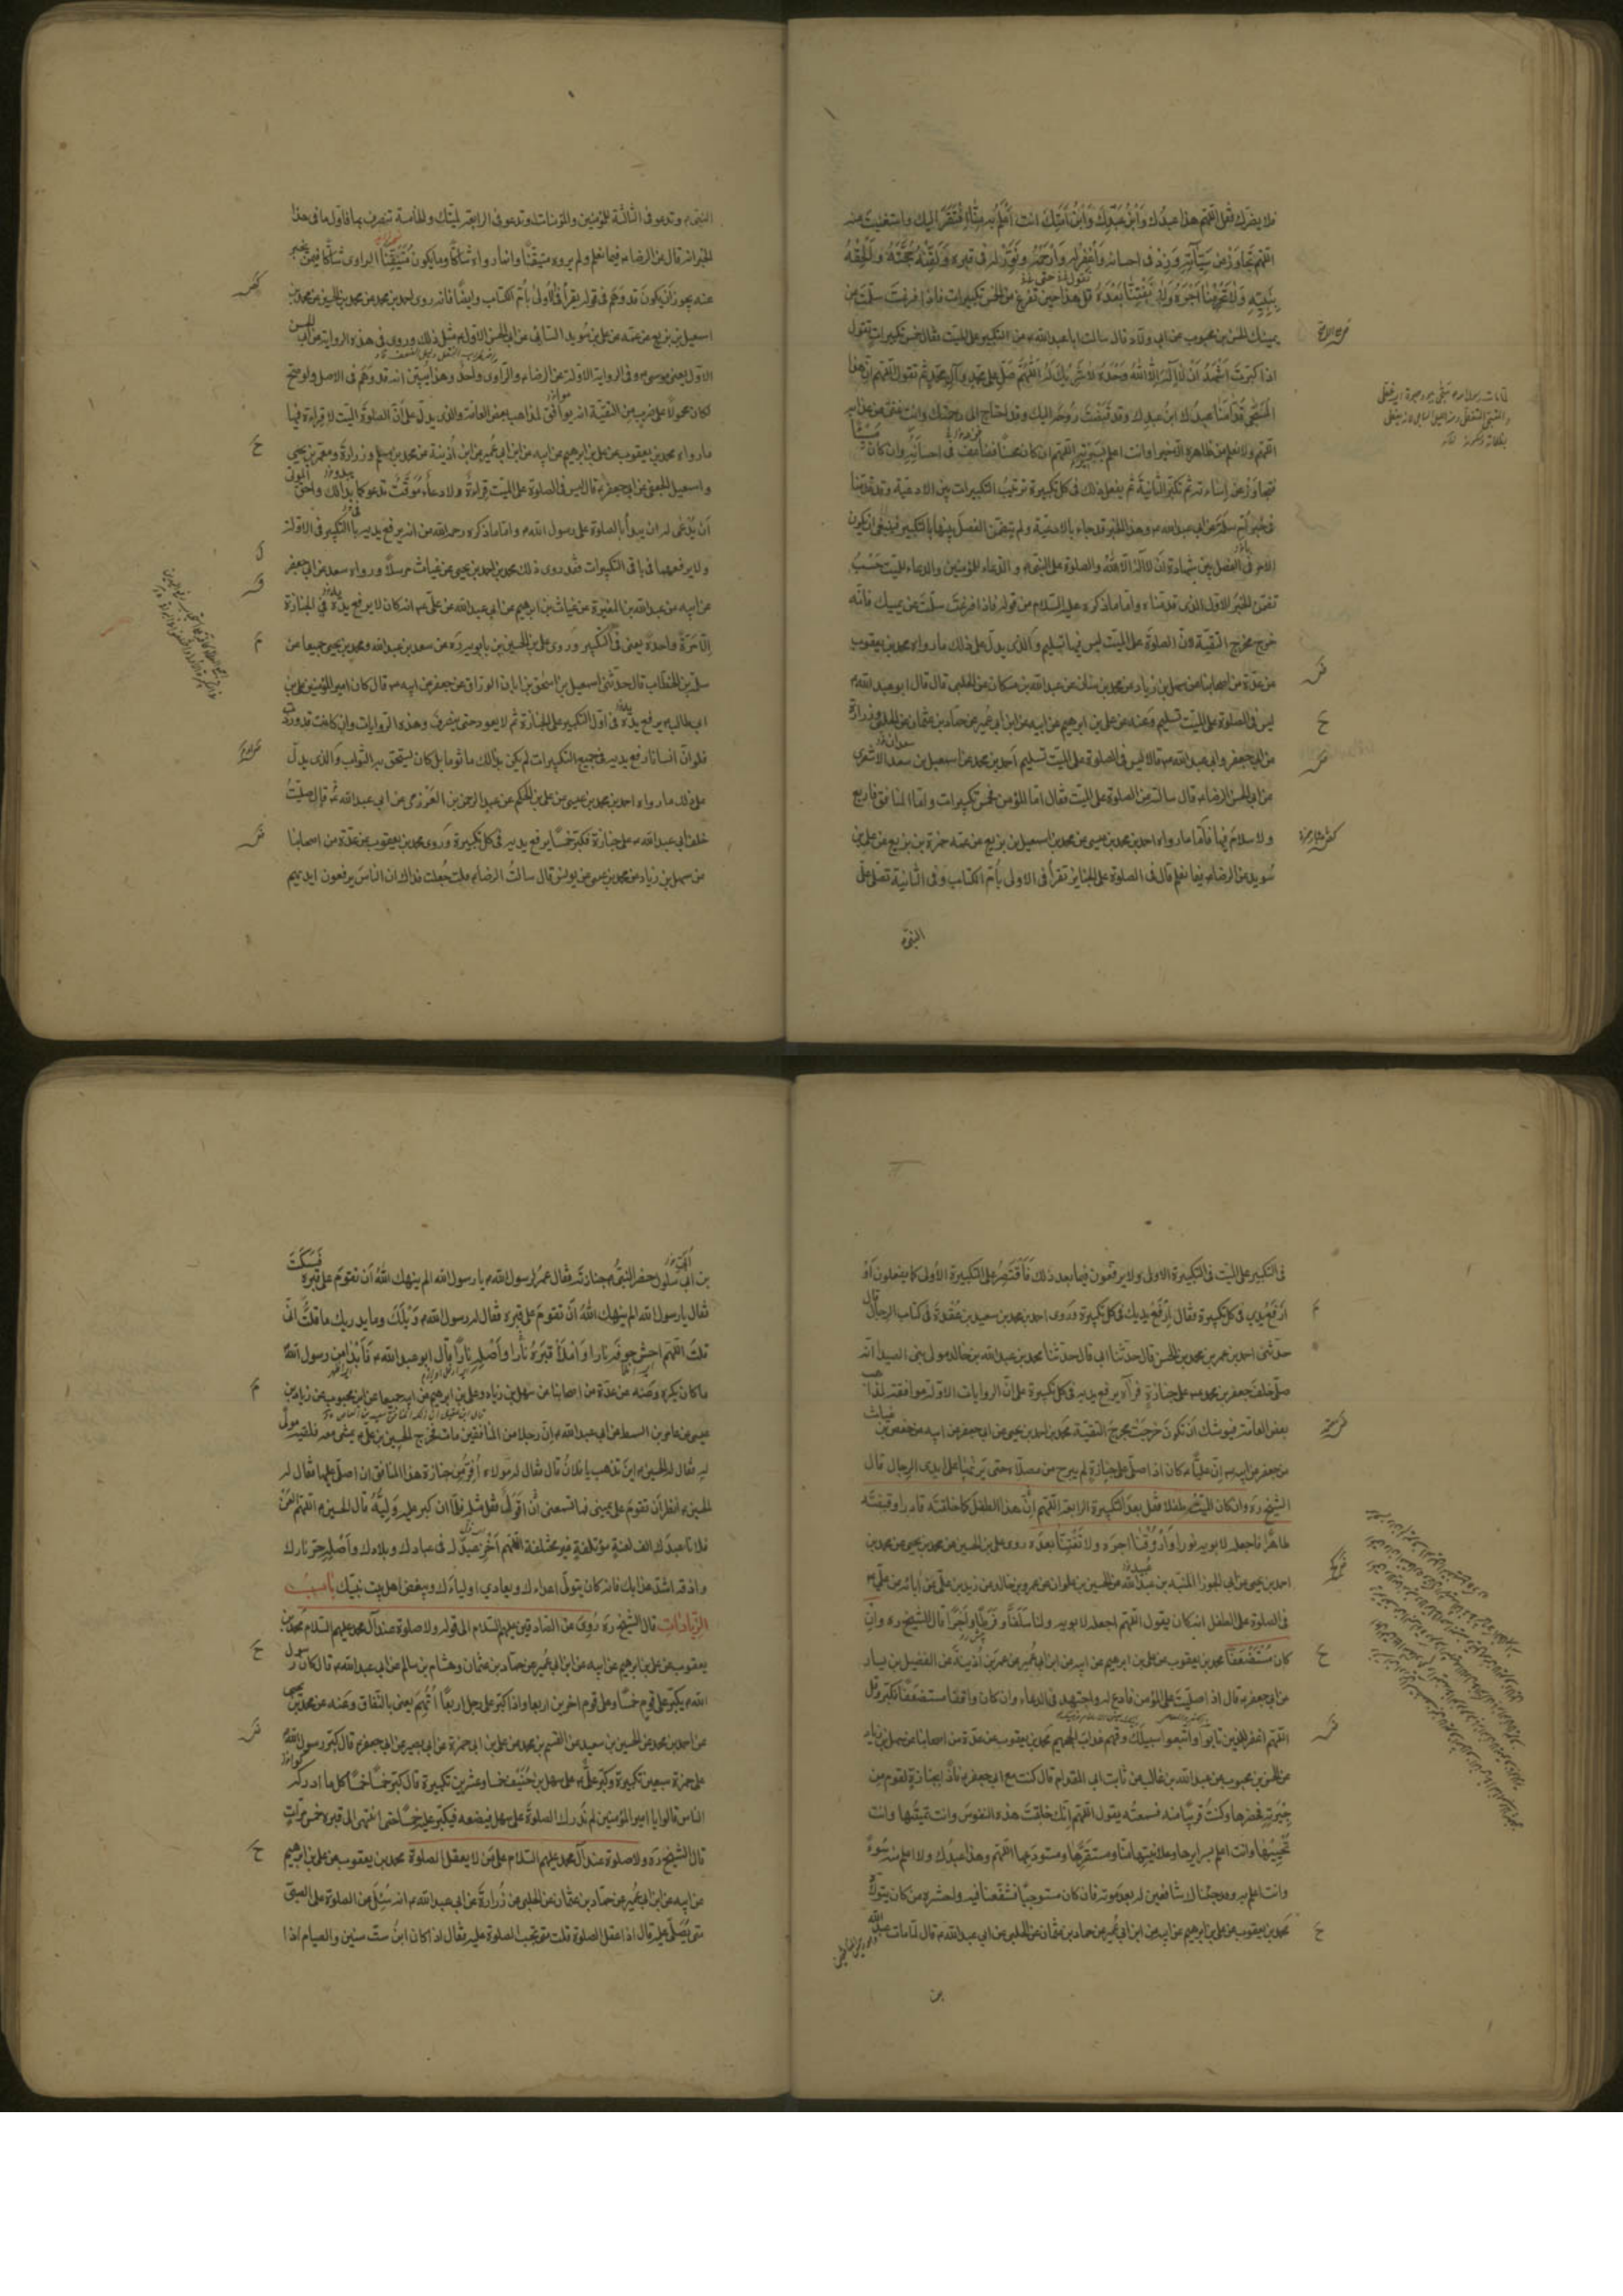 فلا يضرك فقل اللهم هذا عبدك وابن عبدك وابن امتك انت اعلم به منا افتقر اليك واستغنيت عنه
اللهم تجاوز عن سيآته وزد فى احسانه واغفر له وارحمه ونور له فى قبره ولقنه حجته والحقه
بنبيه ولا تحرمنا اجره ولا تفتنا بعده قل هذا حين تفرغ من الخمس تكبيرات فاذا فرغت سلمت عن
يمينك الحسن بن محبوب عن ابى ولاد قال سالت ابا عبد الله ع عن التكبير على الميت فقال خمس تكبيرات تقول
اذا كبرت اشهد ان لا اله الا الله وحده لا شريك له اللهم صل على محمد وآل محمد ثم تقول اللهم ان هذا
المسجى قدامنا عبدك ابن عبدك وقد قبضت روحه اليك وقد احتاج الى رحمتك وانت غنى عن عذابه
اللهم ولا نعلم من ظاهره الا خيرا وانت اعلم بسريرته اللهم ان كان محسنا فضاعف فى احسانه وان كان مسيئا
فتجاوز عن اساءته ثم تكبر الثانية ثم يفعل ذلك فى كل تكبيرة ترتيب التكبيرات بين الادعية وقد قدمنا
فى خبر ام سلمة عن ابى عبد الله ع وهذا الخبر قد جاء بالادعية ولم يتضمن الفصل بينها بالتكبير فينبغى ان يكون
الامر فى الفصل بين شهادة ان لا اله الا الله والصلوة على النبى ص والدعاء للمؤمنين والدعاء للميت حسب
تضمن الخبر الاول الذى قدمناه واما ما ذكره عليه السلام من قوله فاذا فرغت سلمت عن يمينك فانه
خرج مخرج التقية لان الصلوة على الميت ليس فيها تسليم والذى يدل على ذلك ما رواه محمد بن يعقوب
عن عدة من اصحابنا عن سهل بن زياد عن محمد بن سنان عن عبد الله بن مسكان عن الحلبى قال قال ابو عبد الله ع
ليس فى الصلوة على الميت تسليم وعنه عن على بن ابرهيم عن ابيه عن ابن ابى عمير عن حماد بن عثمان عن الحلبى وزرارة
عن ابى جعفر وابى عبد الله ع قالا ليس فى الصلوة على الميت تسليم احمد بن محمد عن اسمعيل بن سعد الاشعرى
عن ابى الحسن الرضا ع قال سالته عن الصلوة على الميت فقال اما المؤمن فخمس تكبيرات واما المنافق فاربع
ولا سلام فيها فاما ما رواه احمد بن محمد بن عيسى عن محمد بن اسمعيل بن بزيع عن عمه حمزة بن بزيع عن على بن
سويد عن الرضا ع فيما نعلم قال فى الصلوة على الجنايز تقرأ فى الاولى بأم الكتاب وفى الثانية تصلى على
النبى ص
النبى ص وتدعو فى الثالثة للمؤمنين والمؤمنات وتدعو فى الرابعة لميتك والخامسة تنصرف بها فاول ما فى هذا
الخبر انه قال عن الرضا ع فيما نعلم ولم يروه متيقنا وانما رواه شاكا وما يكون متيقنا الراوى شاكا فيمن يخبر
عنه يجوز ان يكون قد وهم فى قوله يقرأ فى الاولى بأم الكتاب وايضا فانه روى احمد بن محمد عن محمد بن الحسين عن محمد بن
اسمعيل بن بزيع عن عمه عن على بن سويد السائى عن ابى الحسن الاول ع مثل ذلك وروى فى هذه الرواية عن ابى الحسن
الاول يعنى موسى ع وفى الرواية الاولة عن الرضا ع والراوى واحد وهذا يبين انه قد وهم فى الاصل ولو صح
لكان محمولا على ضرب من التقية انه يوافق لمذاهب بعض العامة والذى يدل على ان الصلوة على الميت لا قراءة فيها
ما رواه محمد بن يعقوب عن على بن ابرهيم عن ابيه عن ابن ابى عمير عن ابن اذينة عن محمد بن مسلم وزرارة ومعمر بن يحيى
واسمعيل الجعفى عن ابى جعفر ع قال ليس فى الصلوة على الميت قراءة ولا دعاء موقت تدعو كما بدا لك واحق الموتى
ان يدعى له ان يبدأ بالصلوة على رسول الله ص واما ما ذكره رحمه الله من انه يرفع يديه بالتكبير فى الاولة
ولا يرفعهما فى باقى التكبيرات فقد روى ذلك محمد بن احمد بن يحيى عن غياث مرسلا ورواه سعد عن ابى جعفر
عن ابيه عن عبد الله بن المغيرة عن غياث بن ابرهيم عن ابى عبد الله عن على ع انه كان لا يرفع يده فى الجنازة
الا مرة واحدة يعنى فى التكبير وروى على بن الحسين بن بابويه ره عن سعد بن عبد الله ومحمد بن يحيى جميعا عن
سلمة بن الخطاب قال حدثنى اسمعيل بن اسحق بن ابان الوراق عن جعفر عن ابيه ع قال كان امير المؤمنين على بن
ابى طالب ع يرفع يده فى اول التكبير على الجنازة ثم لا يعود حتى ينصرف وهذه الروايات وان كانت قد وردت
فلو ان انسانا رفع يديه فى جميع التكبيرات لم يكن بذلك ماثوما بل كان يستحق به الثواب والذى يدل
على ذلك ما رواه احمد بن محمد بن عيسى عن على بن الحكم عن عبد الرحمن بن العزرمى عن ابى عبد الله ع قال صليت
خلف ابى عبد الله ع على جنازة فكبر خمسا يرفع يديه فى كل تكبيرة وروى محمد بن يعقوب عن عدة من اصحابنا
عن سهل بن زياد عن محمد بن عيسى عن يونس قال سالت الرضا ع قلت جعلت فداك ان الناس يرفعون ايديهم
فى التكبير على الميت فى التكبيرة الاولى ولا يرفعون فيما بعد ذلك فاقتصر على التكبيرة الاولى كما يفعلون او
ارفع يدى فى كل تكبيرة فقال ارفع يديك فى كل تكبيرة وروى احمد بن محمد بن سعيد بن عقدة فى كتاب الرجال قال
حدثنى احمد بن عمر بن محمد بن الحسن قال حدثنا ابى قال حدثنا محمد بن عبد الله بن خالد مولى بنى الصيدا انه
صلى خلف جعفر بن محمد ع على جنازة فرآه يرفع يديه فى كل تكبيرة على ان الروايات الاولة موافقة لمذاهب
بعض العامة فيوشك ان تكون خرجت مخرج التقية محمد بن احمد بن يحيى عن ابى جعفر عن ابيه عن حفص بن غياث
عن جعفر عن ابيه ع ان عليا ع كان اذا صلى على جنازة لم يبرح من مصلاه حتى يريها على ايدى الرجال قال
الشيخ ره وان كان الميت طفلا فقل بعد التكبيرة الرابعة اللهم ان هذا الطفل كما خلقته قادرا وقبضته
طاهرا فاجعله لابويه نورا وارزقنا اجره ولا تفتنا بعده روى على بن الحسين عن محمد بن يحيى عن محمد بن
احمد بن يحيى عن ابى الجوزا المنبه بن عبد الله عن الحسين بن علوان عن عمرو بن خالد عن زيد بن على عن آبائه عن على ع
فى الصلوة على الطفل انه كان يقول اللهم اجعله لابويه ولنا سلفا وفرطا واجرا قال الشيخ ره وان
كان مستضعفا محمد بن يعقوب عن على بن ابرهيم عن ابيه عن ابن ابى عمير عن عمر بن اذينة عن الفضيل بن يسار
عن ابى جعفر ع قال اذا صليت على المؤمن فادع له واجتهد فى الدعاء وان كان واقفا مستضعفا فكبر وقل
اللهم اغفر للذين تابوا واتبعوا سبيلك وقهم عذاب الجحيم محمد بن يعقوب عن عدة من اصحابنا عن سهل بن زياد
عن الحسن بن محبوب عن عبد الله بن غالب عن ثابت ابى المقدام قال كنت مع ابى جعفر ع فاذا بجنازة لقوم من
جيرته فحضرها وكنت قريبا منه فسمعته يقول اللهم انك خلقت هذه النفوس وانت تميتها وانت
تحييها وانت اعلم بسرايرها وعلانيتها منا ومستقرها ومستودعها اللهم وهذا عبدك ولا اعلم منه سوءا
وانت اعلم به وقد جئنا لك شافعين له بعد موته فان كان مستوجبا فشفعنا فيه واحشره مع من كان يتولاه
محمد بن يعقوب عن على بن ابرهيم عن ابيه عن ابن ابى عمير عن حماد بن عثمان عن الحلبى عن ابى عبد الله ع قال لما مات عبد الله
بن
بن ابى سلول حضر النبى ص جنازته فقال عمر لرسول الله ص يا رسول الله الم ينهك الله ان تقوم على قبره فسكت
فقال يا رسول الله الم ينهك الله ان تقوم على قبره فقال له رسول الله ص ويلك وما يدريك ما قلت انى
قلت اللهم احش جوفه نارا واملأ قبره نارا واصله نارا قال ابو عبد الله ع فابدا من رسول الله ص
ما كان يكره وعنه عن عدة من اصحابنا عن سهل بن زياد وعلى بن ابرهيم عن ابيه جميعا عن ابن محبوب عن زياد بن
عيسى عن عامر بن السمط عن ابى عبد الله ع ان رجلا من المنافقين مات فخرج الحسين بن على ع يمشى معه فلقيه مولى
له فقال له الحسين ع اين تذهب يا فلان قال فقال له مولاه افر من جنازة هذا المنافق ان اصلى عليها فقال له
الحسين ع انظر ان تقوم على يمينى فما تسمعنى ان اقول فقل مثله فلما ان كبر عليه وليه قال الحسين ع اللهم العن
فلانا عبدك الف لعنة مؤتلفة غير مختلفة اللهم اخز عبدك فى عبادك وبلادك واصله حر نارك
واذقه اشد عذابك فانه كان يتولى اعداءك ويعادى اولياءك ويبغض اهل بيت نبيك باب
الزيادات قال الشيخ ره روى عن الصادقين عليهم السلام الى قوله ولا صلوة عند آل محمد عليهم السلام محمد بن
يعقوب عن على بن ابرهيم عن ابيه عن ابن ابى عمير عن حماد بن عثمان وهشام بن سالم عن ابى عبد الله ع قال كان رسول
الله ص يكبر على قوم خمسا وعلى قوم آخرين اربعا واذا كبر على رجل اربعا اتهم يعنى بالنفاق وعنه عن محمد بن يحيى
عن احمد بن محمد عن الحسين بن سعيد عن القسم بن محمد عن على بن ابى حمزة عن ابى بصير عن ابى جعفر ع قال كبر رسول الله ص
على حمزة سبعين تكبيرة وكبر على ع على سهل بن حنيف خمسا وعشرين تكبيرة قال كبر خمسا خمسا كلما ادركه
الناس قالوا يا امير المؤمنين لم ندرك الصلوة على سهل فيضعه فيكبر عليه خمسا حتى انتهى الى قبره خمس مرات
قال الشيخ ره ولا صلوة عند آل محمد عليهم السلام على من لا يعقل الصلوة محمد بن يعقوب عن على بن ابرهيم
عن ابيه عن ابن ابى عمير عن حماد بن عثمان عن الحلبى عن زرارة عن ابى عبد الله ع انه سئل عن الصلوة على الصبى
متى يصلى عليه قال اذا عقل الصلوة قلت متى تجب الصلوة عليه فقال اذا كان ابن ست سنين والصيام اذا